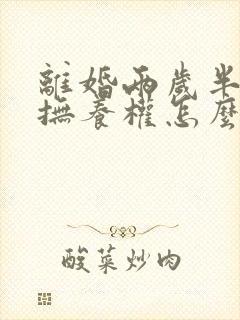 離婚兩歲半
撫養權怎麼
酸菜炒肉